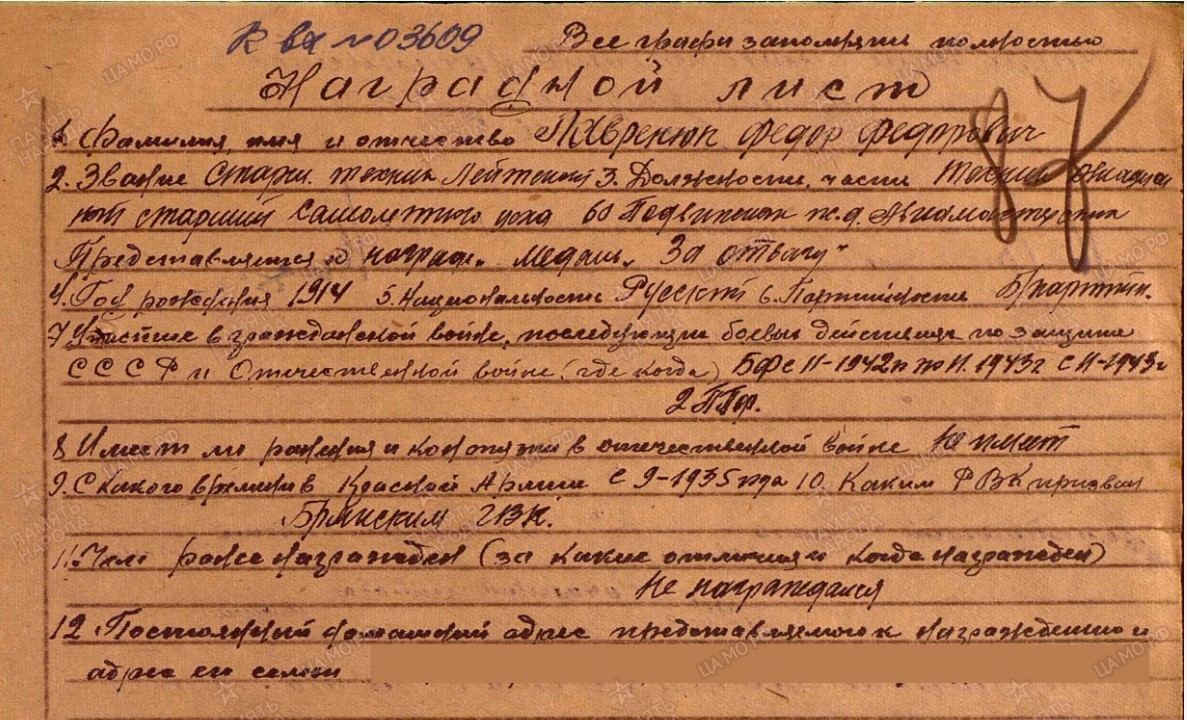 К вх №03609 Все графы заполнять полностью
Наградной лист
1. Фамилия, имя и отчество Лавренюк Федор Федорович
2. Звание Старш. техник Лейтенант 3. Должность, части Техник
старший самолетного цеха 60 Подвижная ж.д. Авиамастерская
Представляется к наград. медаль "За отвагу"
4. Год рождения 1914 5. Национальность Русский 6. Партийность Б/партийн.
7 Участие в гражданской войне, последующих боевых действиях по защите
СССР и Отечественной войне (где когда) БФ с II-1942 по II. 1943г с II-1943г
2 ПФ.
8 Имеет ли ранения и контузии в отечественной войне Не имеет
9. С какого времени в Красной Армии с 9-1935 года 10. Каким РВК призван
Брянским ГВК.
11. Чем ранее награжден (за какие отличия и когда награжден)
Не награждался
12. Постоянный домашний адрес представляемого к награждению и
адрес его семьи
87
ПАМЯТЬ НАРОДА
ЦАМО.РФ